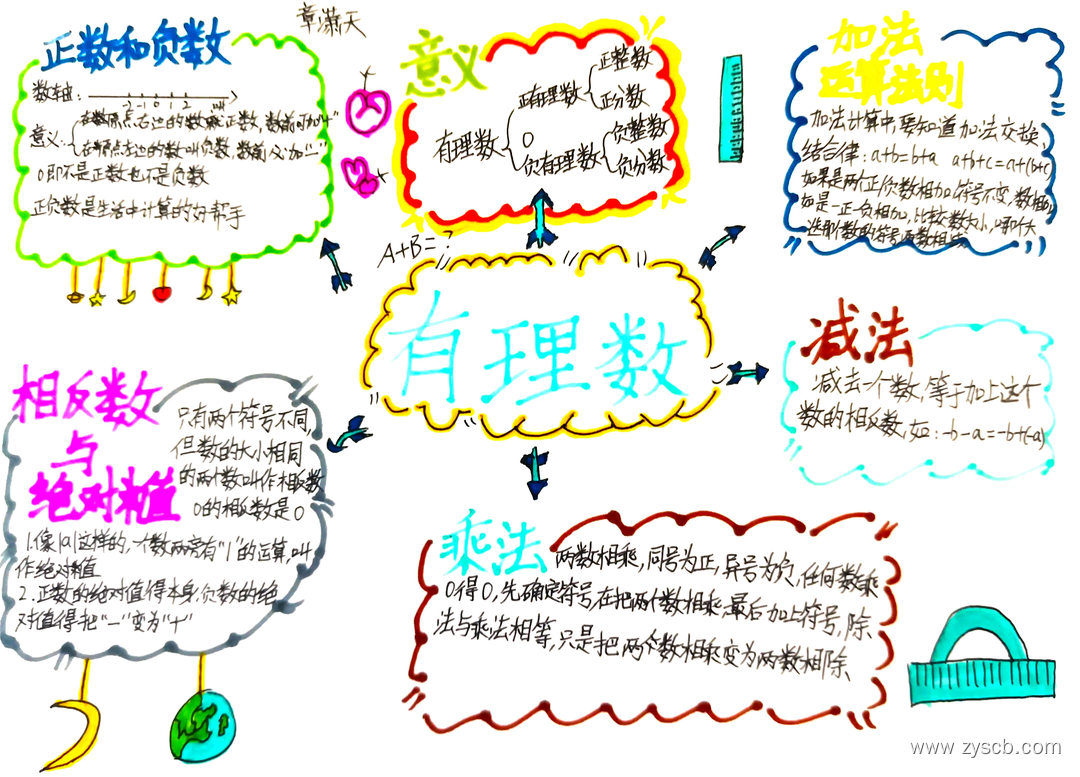 章潇天
正数和负数
数轴:
-2 -1 0 1 2
意义:
在数原点右边的数叫正数,数前可加"+"
在原点左边的数叫负数,数前必加"-"
0即不是正数也不是负数
正负数是生活中计算的好帮手
意义
有理数
正有理数
正整数
正分数
0
负有理数
负整数
负分数
加法
运算法则
加法计算中,要知道加法交换,
结合律:a+b=b+a a+b+c=a+(b+c)
如果是两个正负数相加,符号不变,数相加,
如是一正一负相加,比较数大小,哪个大
选哪个数的符号,两数相减
A+B=?
有理数
减法
减去一个数,等于加上这个
数的相反数,如:-b-a=-b+(-a)
相反数
与
绝对值
只有两个符号不同,
但数的大小相同
的两个数叫作相反数
0的相反数是0
1.像|a|这样的,一个数两旁有"|"的运算,叫
作绝对值
2.正数的绝对值得本身,负数的绝
对值得把"-"变为"+"
乘法
两数相乘,同号为正,异号为负,任何数乘
0得0,先确定符号,在把两个数相乘,最后加上符号,除
法与乘法相等,只是把两个数相乘变为两数相除
www.zyscb.com